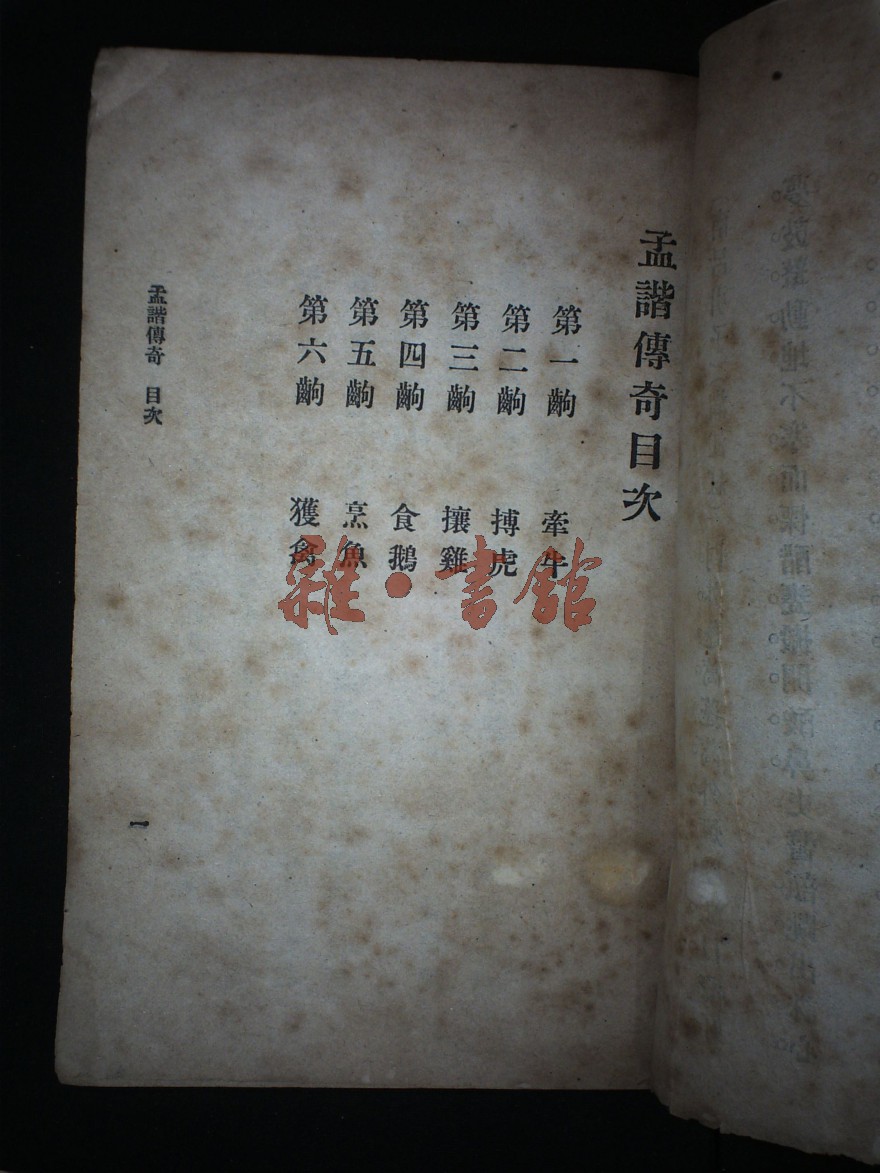 孟諧傳奇目次
第一齣 牽牛
第二齣 搏虎
第三齣 攘雞
第四齣 食鵝
第五齣 烹魚
第六齣 獲禽
孟諧傳奇 目次
一
雜·書館